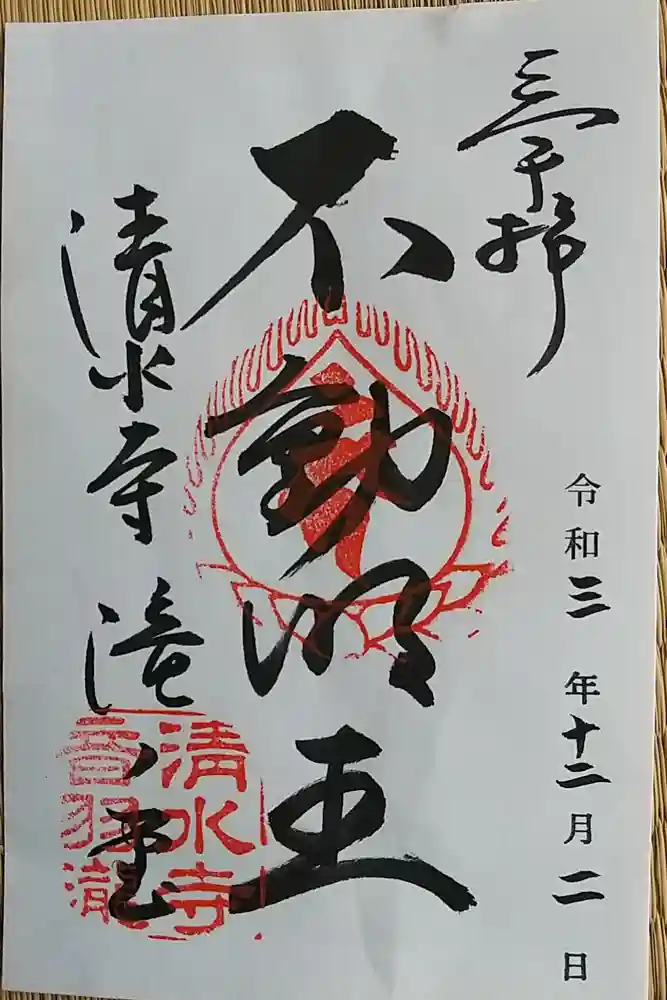 奉拝
令和三年十二月二日
不動明王
清水寺 滝ノ堂
清水寺
音羽瀧